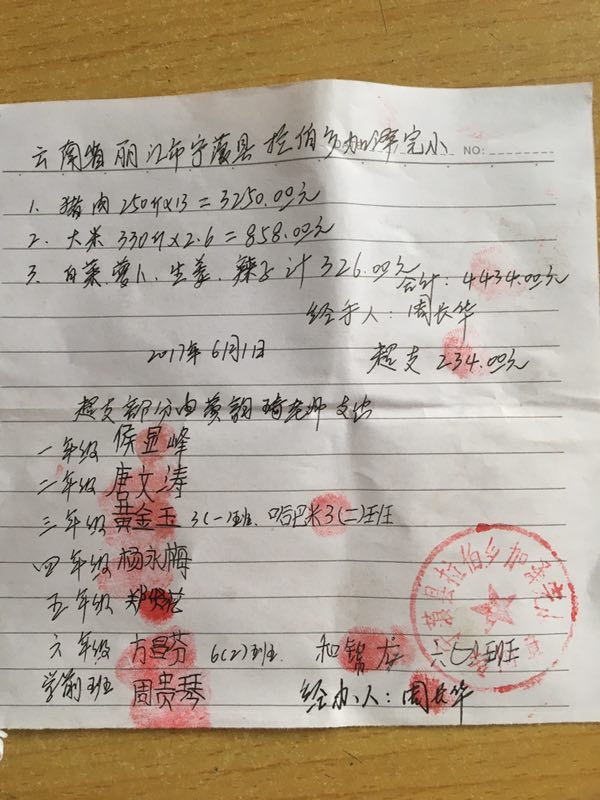 云南省丽江市宁蒗县拉伯乡加泽完小 NO:
1. 猪肉 250斤×13=3250.00元
2. 大米 330斤×2.6=858.00元
3. 白菜、萝卜、生姜、辣子 计 326.00元
合计: 4434.00元
经手人: 周长华
2017年6月1日 超支 234.00元
超支部分由 老师支出
一年级 侯显峰
二年级 唐文涛
三年级 黄金玉 3(一)班. 哈巴米 3(二)班
四年级 杨永梅
五年级 郑
六年级 方昌芬 6(2)班. 和智 六(一)班
学前班 周贵琴 经办人: 周长华
县拉伯乡加